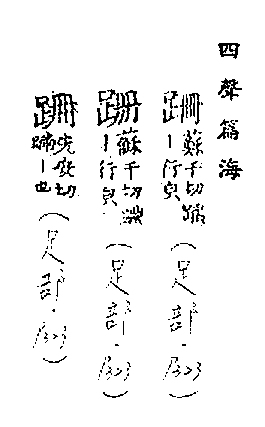 四聲篇海
跚蘇干切蹣｜行皃（足部．P323）
跚蘇干切蹣｜行皃（足部．P323）
跚先安切蹣｜也（足部．P323）